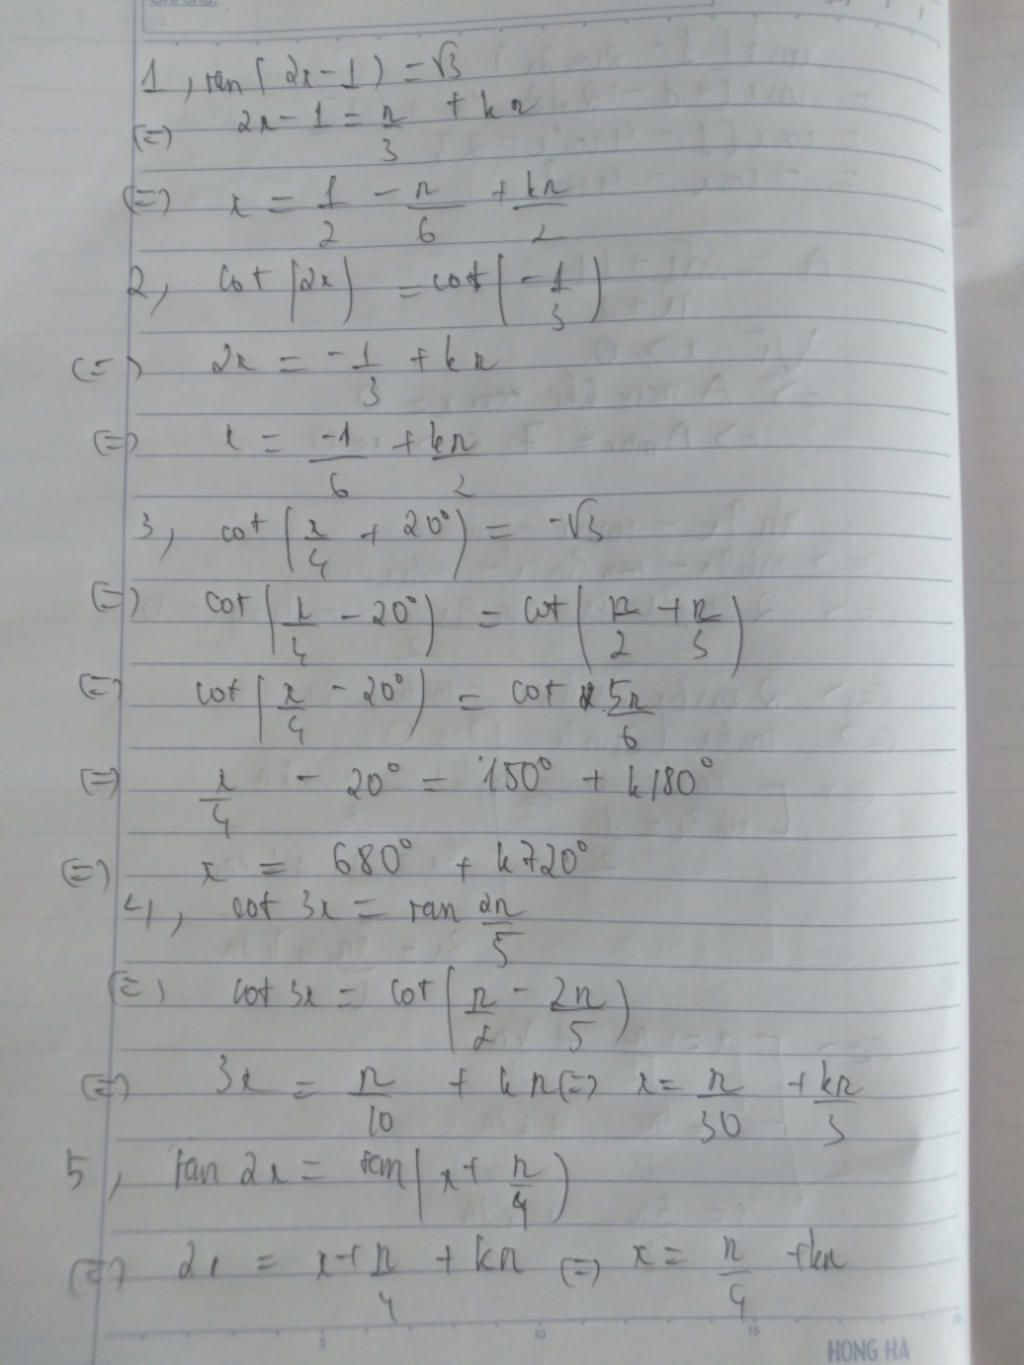 1, tan(2x-1) = √3
(=) 2x-1 = π/3 + kπ
(=) x = 1/2 - π/6 + kπ/2
2, cot(2x) = cot(-1/3)
(=) 2x = -1/3 + kπ
(=) x = -1/6 + kπ/2
3, cot(x/4 + 20°) = -√3
(=) cot(x/4 - 20°) = cot(π/2 + π/3)
(=) cot(x/4 - 20°) = cot 5π/6
(=) x/4 - 20° = 150° + k180°
(=) x = 680° + k720°
4, cot 3x = tan 2π/5
(=) cot 3x = cot(π/2 - 2π/5)
(=) 3x = π/10 + kπ (=) x = π/30 + kπ/3
5, tan 2x = tan(x+ π/4)
(=) 2x = x+ π/4 + kπ (=) x = π/4 + kπ
5 10 15
HONG HA